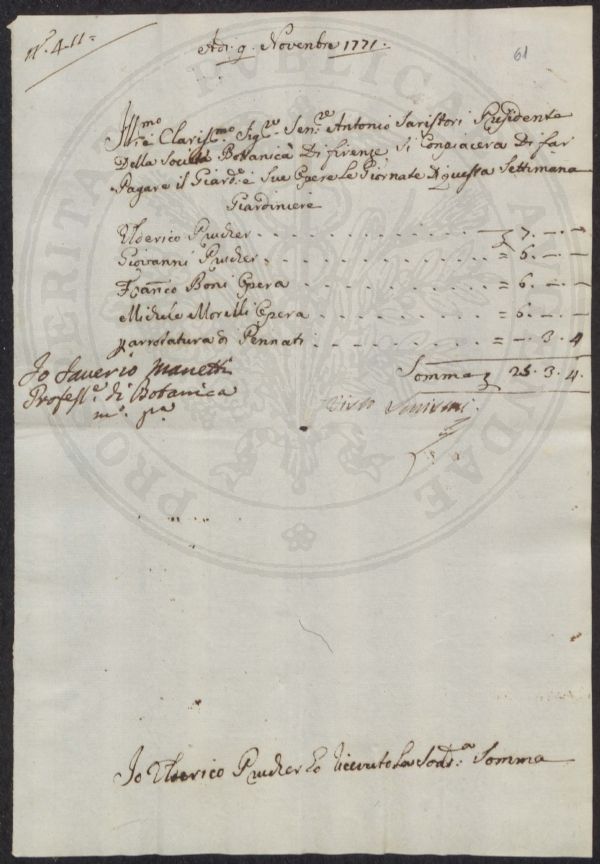 N.° 4.11=
Adi. 9. Novenbre 1771.
61
Ill:mo e Clarisi:mo Sig:re Sen:re Antonio Saristori Presidente
Della Società Botanica Di firenze Si Conpiacera Di far
Pagare il Giard:e e Sue Opere Le Giornate Di questa Settimana
Giardiniere
Ulderico Prucher 7. — —
Giovanni Prucher = 6. — —
Fran:co Boni Opera = 6. — —
Michele Morelli Opera = 6. — —
p arrotatura di Pennati = — 3. 4
Somma 25. 3. 4.
Io Saverio Manetti
Profess:e di Botanica
m:o p:a
Visto
Io Ulderico Prucher Ò Ricevuto La Sod:a Somma
PVBLICA
PROSPERITATI AVGENDAE